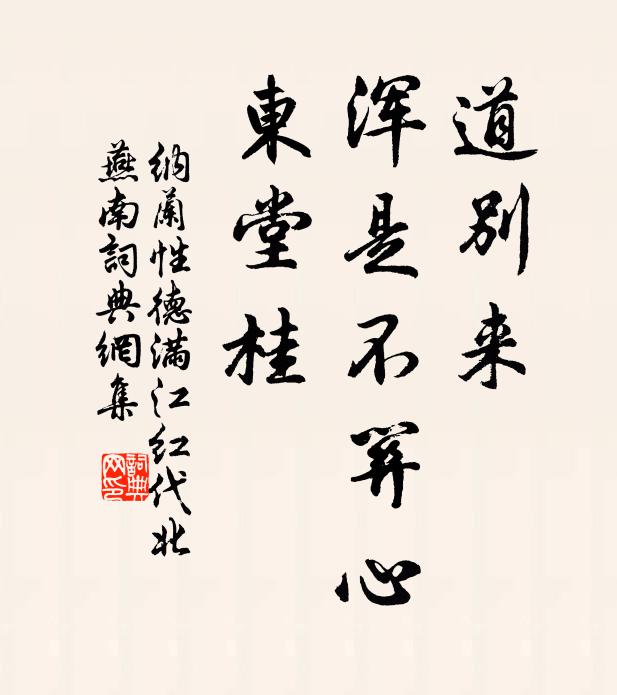 道别来
浑是不羿心
東堂桂
纳蘭性德满江红代北
燕南詞典網集
詞典
网印